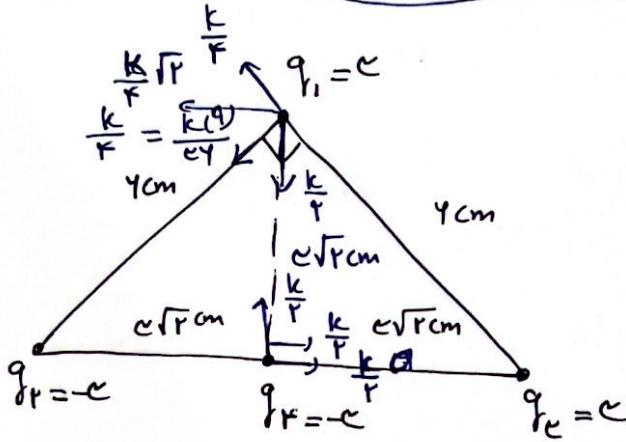 k/۴
q₁ = ۳
k/۴ √۲
k/۴ = k(۹)/۳۶
۶cm
k/۲
۶cm
۳√۲cm
k/۲
۳√۲cm
k/۲
۳√۲cm
k/۲
q۲ = -۳
q۴ = -۳
q۳ = ۳